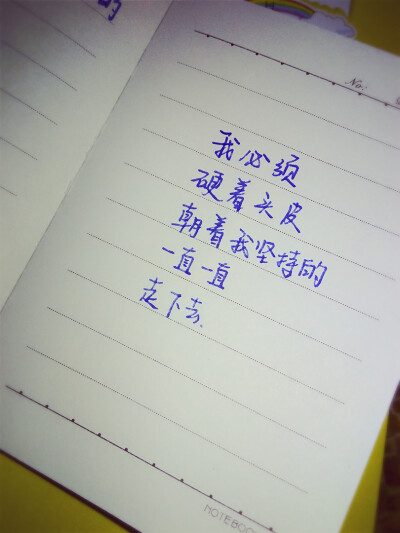 的
No:
我必须
硬着头皮
朝着我坚持的
一直一直
走下去.
NOTEBOOK